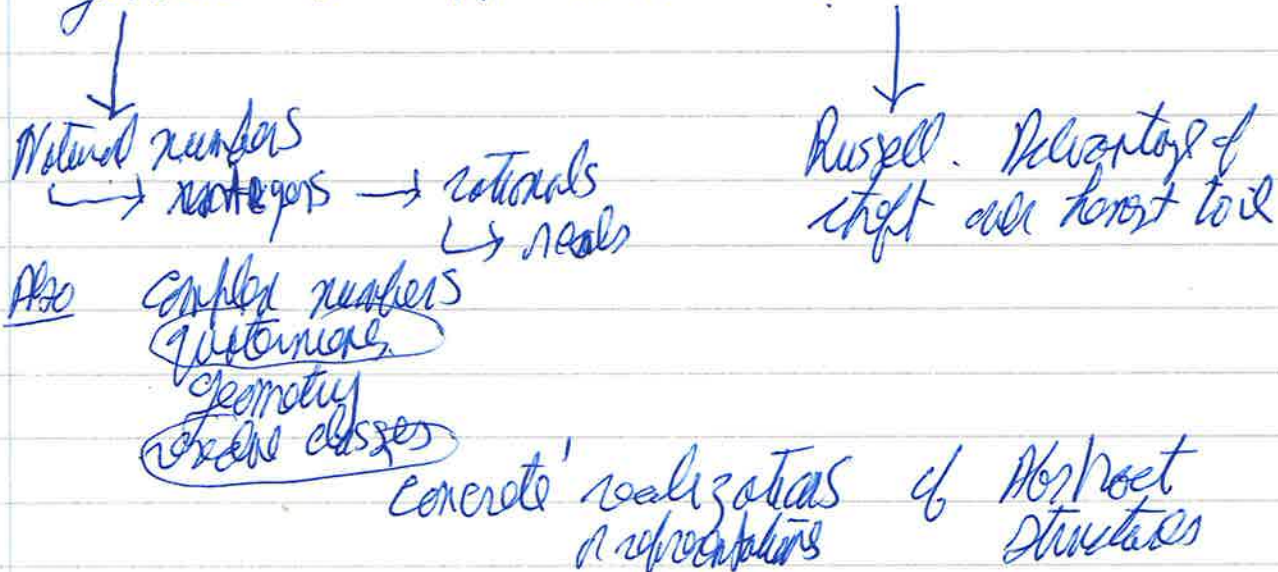 Natural numbers
↳ integers → rationals
↳ reals
Russell. Advantage of
theft over honest toil
Also complex numbers
quaternions
geometry
residue classes
'concrete' realizations of Abstract
or representations structures